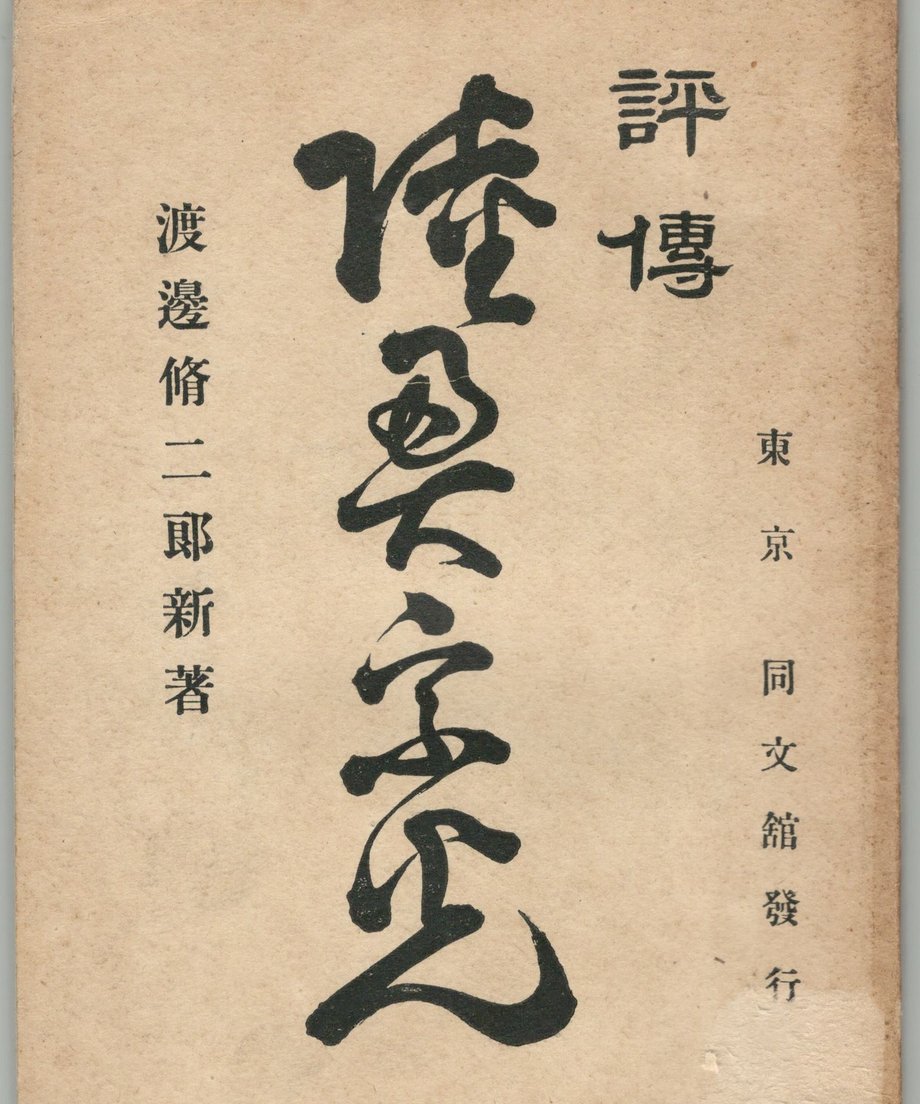 東京 同文舘發行
評傳
陸奧宗光
渡邊脩二郎新著